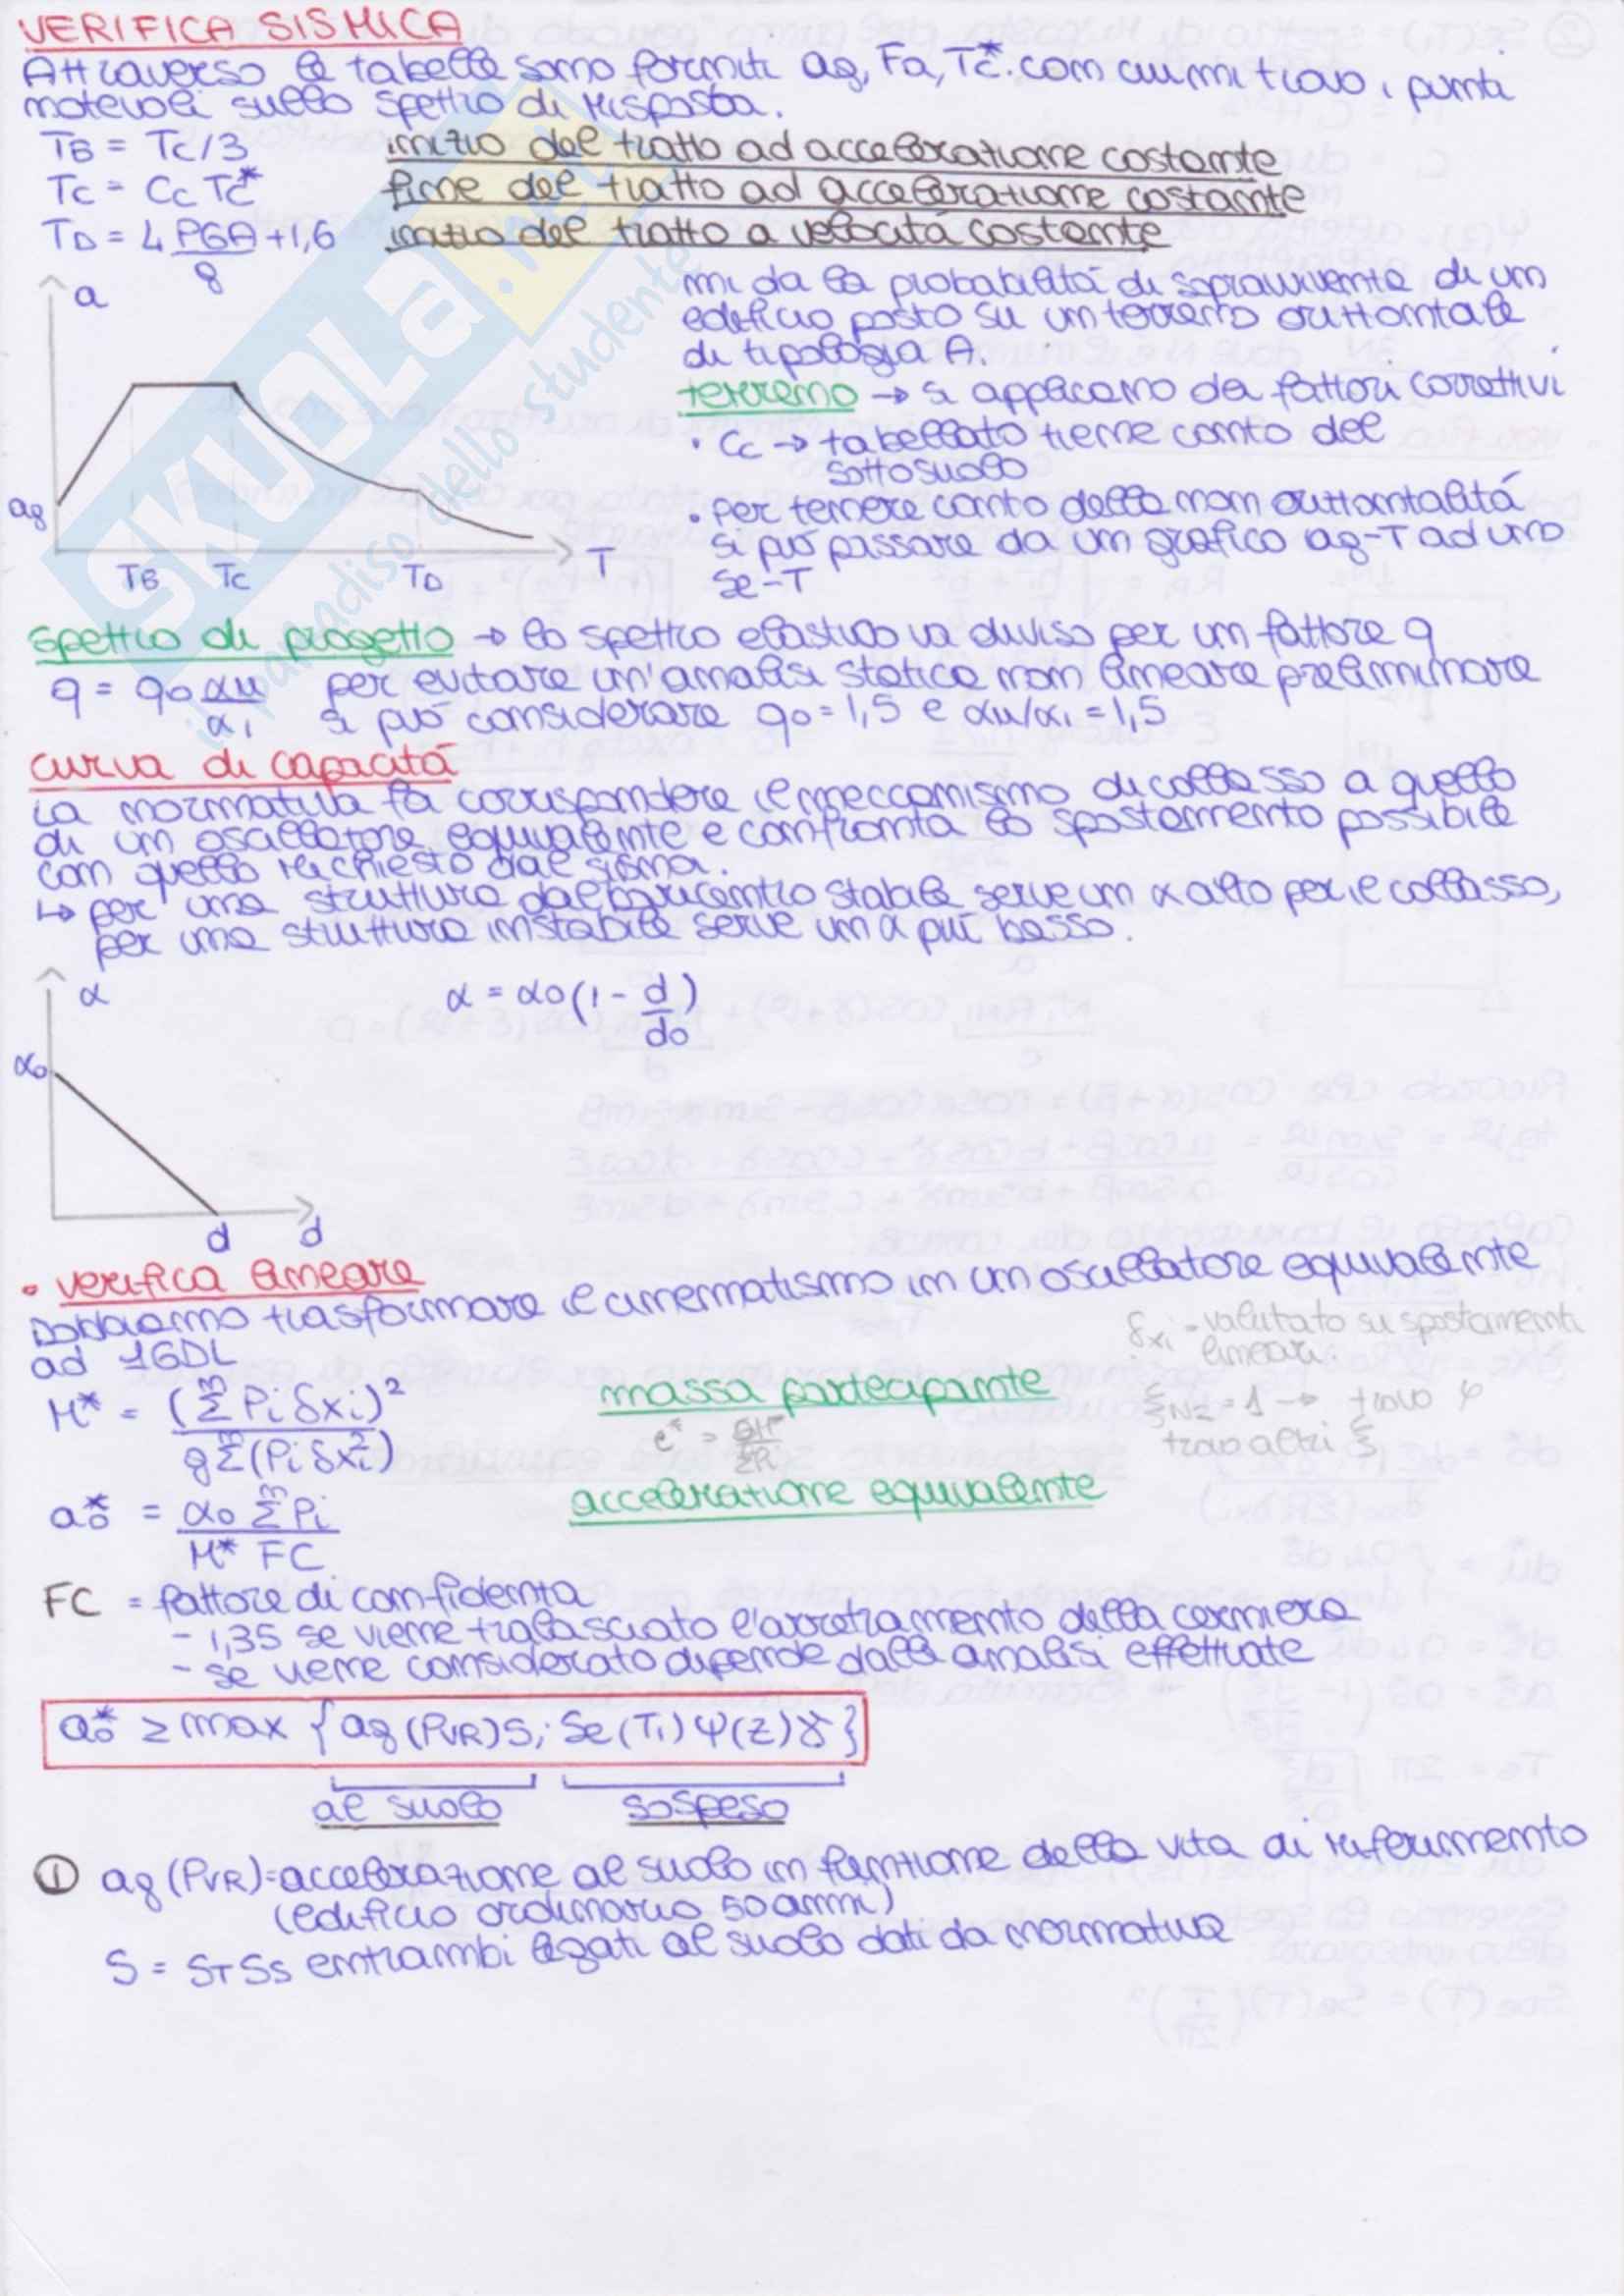 VERIFICA SISMICA
Attraverso le tabelle sono forniti ag, Fa, Tc*. con cui mi trovo i punti
notevoli sullo spettro di risposta.
TB = Tc/3 inizio del tratto ad accelerazione costante
Tc = Cc Tc* fine del tratto ad accelerazione costante
TD = 4 PGA/g + 1,6 inizio del tratto a velocità costante
a
ag
TB Tc TD T
mi da la probabilità di sopravvivente di un
edificio posto su un terreno orizzontale
di tipologia A.
terreno → si applicano dei fattori correttivi
• Cc → tabellato tiene conto del
sottosuolo
• per tenere conto della non orizzontalità
si può passare da un grafico ag-T ad uno
Se-T
SKUOLA.net
il paradiso dello studente
spettro di progetto → lo spettro elastico va diviso per un fattore q
q = q0 αu/α1 per evitare un'analisi statica non lineare preliminare
si può considerare q0 = 1,5 e αu/α1 = 1,5
curva di capacità
La normativa fa corrispondere il meccanismo di collasso a quello
di un oscillatore equivalente e confronta lo spostamento possibile
con quello richiesto dal sisma.
↳ per una struttura dal baricentro stabile serve un α alto per il collasso,
per una struttura instabile serve un α più basso.
α
α = α0 (1 - d/d0)
α0
d d
• verifica lineare
Dobbiamo trasformare il cinematismo in un oscillatore equivalente
ad 1GDL
δxi = valutato su spostamenti
lineari.
M* = (Σⁿ Pi δxi)² / g Σⁿ (Pi δxi²) massa partecipante
ξN2 = 1 → trovo φ
trovo altri ξ
a0* = α0 Σⁿ Pi / M* FC accelerazione equivalente
FC = fattore di confidenza
- 1,35 se viene tralasciato l'arretramento della cerniera
- se viene considerato dipende dalle analisi effettuate
a0* ≥ max { ag (PVR) S; Se (T1) ψ(Z) γ }
al suolo sospeso
① ag (PVR) = accelerazione al suolo in funzione della vita di riferimento
(edificio ordinario 50 anni)
S = ST SS entrambi legati al suolo dati da normativa